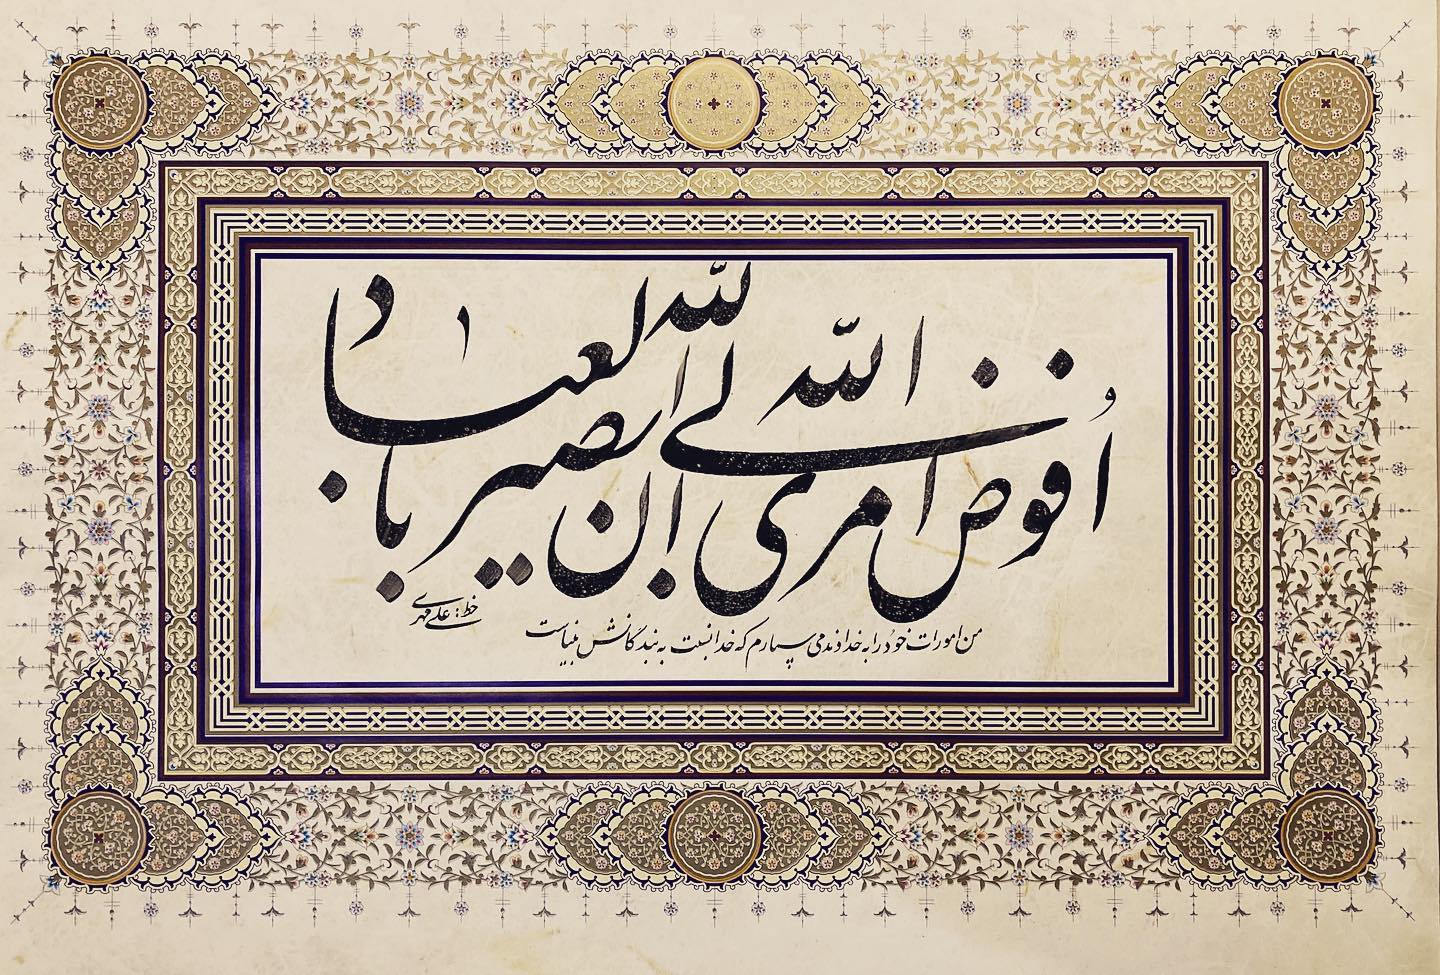 اُفوّض امری الی الله ان الله بصیر بالعباد
من امورات خود را به خداوند می سپارم که خدا نسبت به بندگانش بیناست
خط: علی مهدی